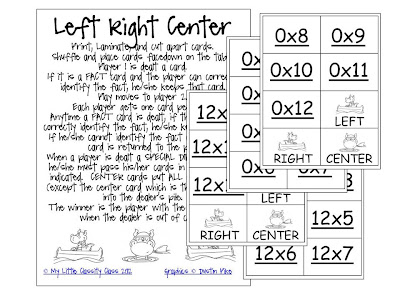 Left Right Center
Print, Laminate, and cut apart cards.
Shuffle and place cards facedown on the tab
Player 1 is dealt a card.
If it is a FACT card and the player can correct
identify the fact, he/she keeps that card.
Play moves to player 2.
Each player gets one card pe
Anytime a FACT card is dealt, if th
correctly identify the fact, he/she k
If he/she cannot identify the fact
card is returned to the p
When a player is dealt a SPECIAL DI
he/she must pass his/her cards in
indicated. CENTER cards put ALL
(except the center card which is th
into the dealer's pile.
The winner is the player with the
when the dealer is out of c
© My Little Classity Class 2012
Graphics © Dustin Pike
0x8
0x9
0x10
0x11
0x12
LEFT
RIGHT
CENTER
0x
0x
0x
RIGHT
12x
12x
LEFT
RIGHT
CENTER
12x5
12x6
12x7